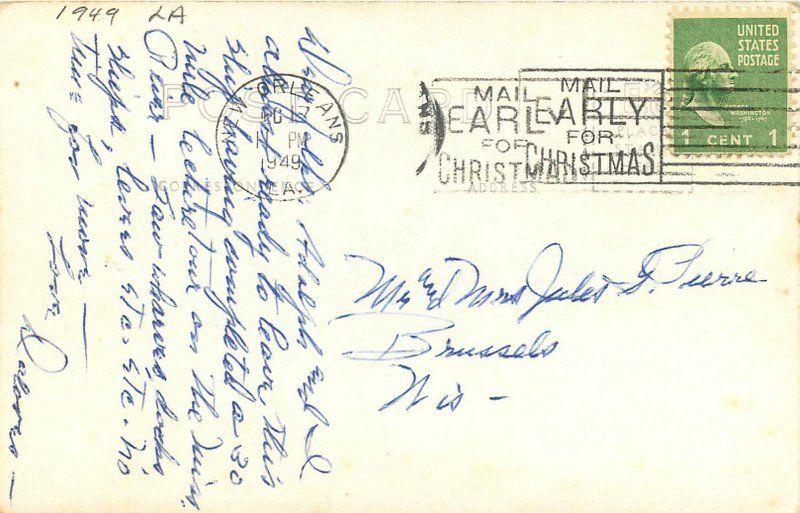 1949 LA
UNITED
STATES
POSTAGE
WASHINGTON
1 CENT 1
MAIL
EARLY
FOR
CHRISTMAS
MAIL
EARLY
FOR
CHRISTMAS
ORLEANS
PM
1949
LA.
POST CARD
CORRESPONDENCE
ADDRESS
PLACE
Well folks: Adolph and I
almost ready to leave this
ship having completed a 30
mile lecture tour on the Miss.
River — Saw wharves, docks
ships, levees etc. etc. No
time for more —
Love Dolores —
Mr and Mrs Jules G. Pierre
Brussels
Wis —